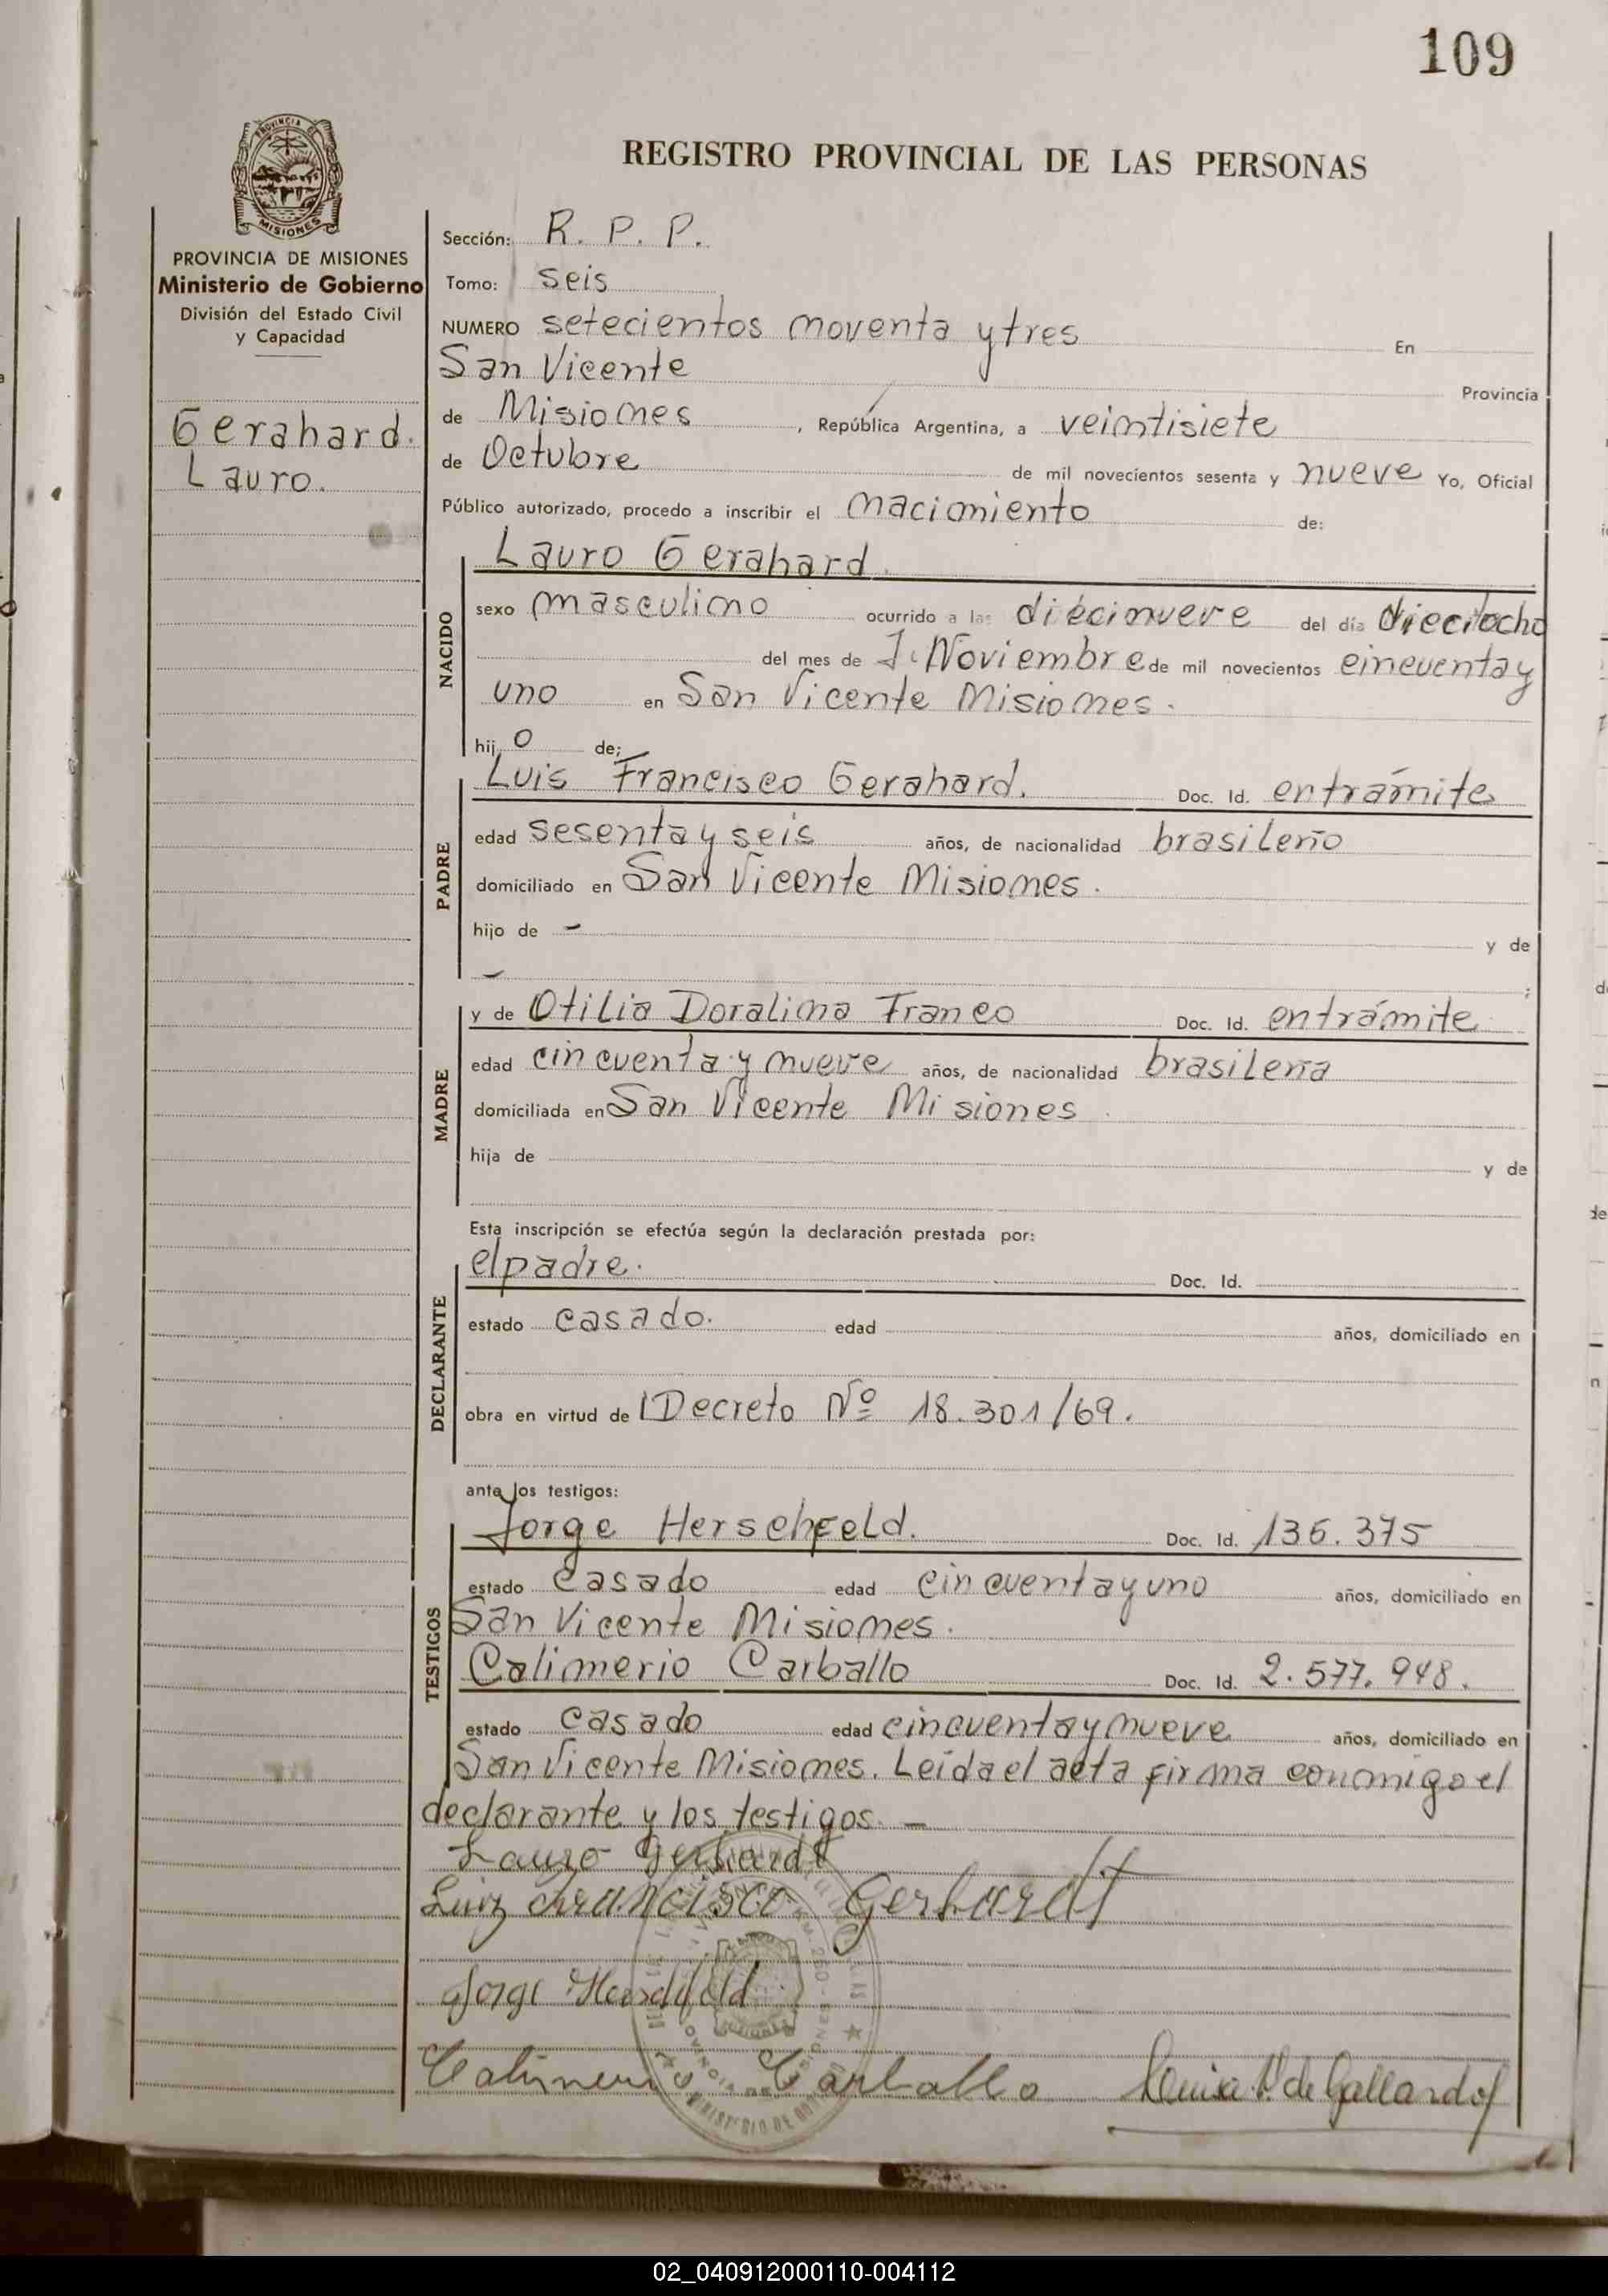 109
REGISTRO PROVINCIAL DE LAS PERSONAS
PROVINCIA DE
MISIONES
PROVINCIA DE MISIONES
Ministerio de Gobierno
División del Estado Civil
y Capacidad
Gerahard.
Lauro.
Sección: R. P. P.
Tomo: seis
NUMERO setecientos noventa y tres En
San Vicente Provincia
de Misiones, República Argentina, a veintisiete
de Octubre de mil novecientos sesenta y nueve Yo, Oficial
Público autorizado, procedo a inscribir el nacimiento de:
NACIDO
Lauro Gerahard.
sexo masculino ocurrido a las diecinueve del día dieciocho
del mes de Noviembre de mil novecientos cincuenta y
uno en San Vicente Misiones.
hij o de:
PADRE
Luis Francisco Gerahard. Doc. Id. en trámite
edad sesenta y seis años, de nacionalidad brasileño
domiciliado en San Vicente Misiones.
hijo de - y de
- ;
MADRE
y de Otilia Doralina Franco Doc. Id. en trámite
edad cincuenta y nueve años, de nacionalidad brasileña
domiciliada en San Vicente Misiones.
hija de y de
Esta inscripción se efectúa según la declaración prestada por:
DECLARANTE
el padre. Doc. Id.
estado casado. edad años, domiciliado en
obra en virtud de Decreto Nº 18.301/69.
ante los testigos:
TESTIGOS
Jorge Herschfeld. Doc. Id. 136.375
estado casado edad cincuenta y uno años, domiciliado en
San Vicente Misiones.
Calimerio Carballo Doc. Id. 2.577.948.
estado casado edad cincuenta y nueve años, domiciliado en
San Vicente Misiones. Leída el acta firma conmigo el
declarante y los testigos. -
Lauro Gerhardt
Luiz Francisco Gerhardt
Jorge Herschfeld
Calimerio Carballo
de Gallardo
02_040912000110-004112